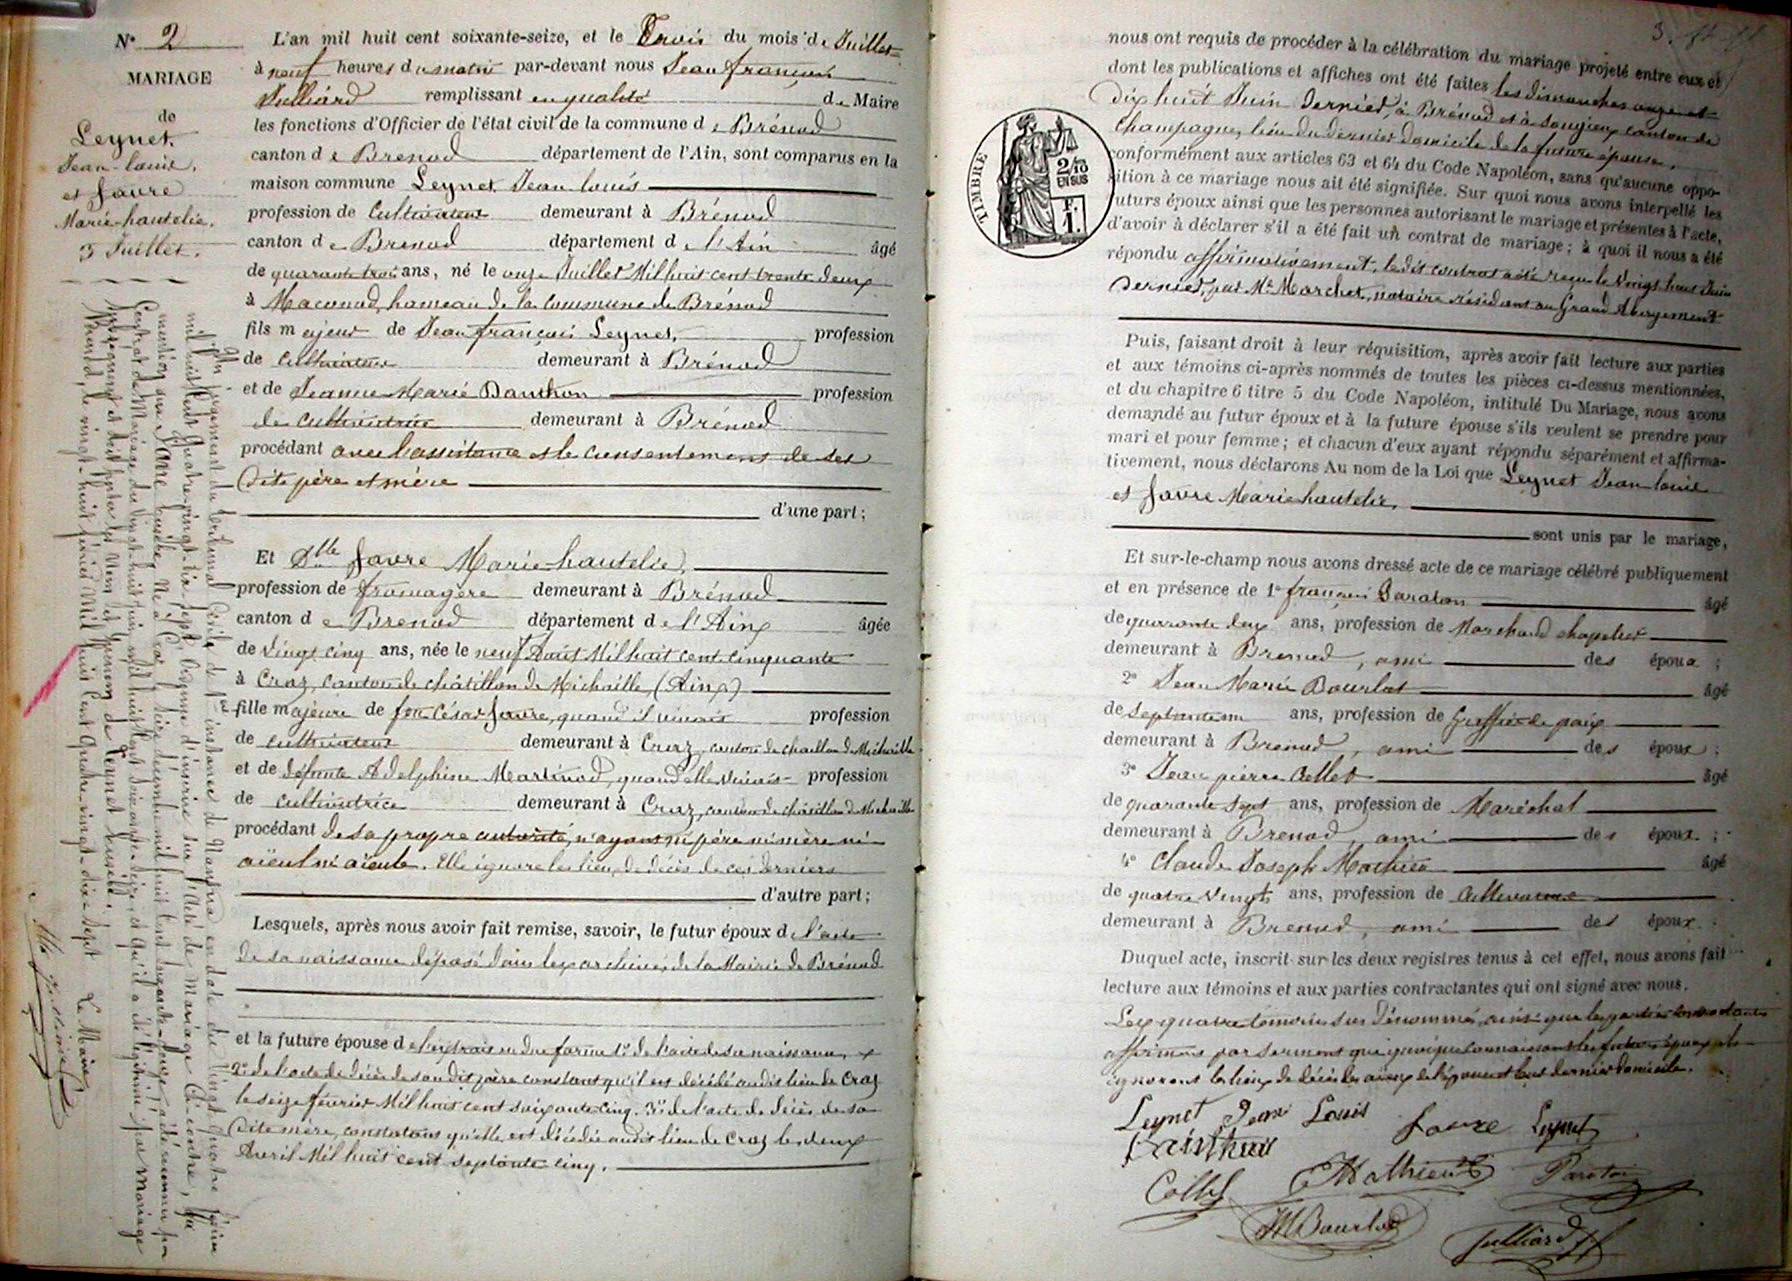 N° 2
MARIAGE
de
Leynet
Jean-Louis,
et Favre
Marie-hautelie.
3 Juillet.
L'an mil huit cent soixante-seize, et le Trois du mois de Juillet
à neuf heures du matin par-devant nous Jean françois
Julliard remplissant en qualité de Maire
les fonctions d'Officier de l'état civil de la commune de Brénod
canton de Brenod département de l'Ain, sont comparus en la
maison commune Leynet Jean Louis
profession de Cultivateur demeurant à Brénod
canton de Brenod département de l'Ain âgé
de quarante trois ans, né le onze Juillet Mil huit cent trente deux
à Maconod, hameau de la Commune de Brénod
fils majeur de Jean françois Leynet, profession
de Cultivateur demeurant à Brénod
et de Jeanne Marie Danthon profession
de cultivatrice demeurant à Brénod
procédant avec l'assistance et le consentement de ses
dits père et mère
d'une part;
Et Dlle Favre Marie-hautelie,
profession de fromagère demeurant à Brénod
canton de Brenod département de l'Ain âgée
de vingt cinq ans, née le neuf Août Mil huit cent cinquante
à Craz, canton de châtillon de Michaille (Ain)
fille majeure de feu César Favre, quand il vivait profession
de cultivateur demeurant à Craz, canton de chatillon de Michaille
et de défunte Adelphine Martinod, quand elle vivait profession
de cultivatrice demeurant à Craz, canton de châtillon de Michaille
procédant de sa propre autorité, n'ayant ni père ni mère ni
aïeul ni aïeule. Elle ignore les lieux de décès de ces derniers
d'autre part;
Lesquels, après nous avoir fait remise, savoir, le futur époux de l'acte
de sa naissance déposé dans les archives de la Mairie de Brénod
et la future épouse de l'extrait en due forme 1° de l'acte de sa naissance,
2° de l'acte de décès de son dit père constant qu'il est décédé audit lieu de Craz
le seize février Mil huit cent soixante cinq. 3° de l'acte de décès de sa
dite mère, constatant qu'elle est décédée audit lieu de Craz le deux
Avril Mil huit cent septante cinq.
Par jugement du tribunal Civil de 1ère instance de Nantua en date du Vingt quatre février
mil huit cent quatre-vingt-dix sept, ordonne d'inscrire sur l'acte de Mariage Ci-contre, la
mention que Favre Eusèbe, né à Craz le seize décembre mil huit cent soixante-douze, a été reconnu par
Contrat de Mariage du Vingt-huit juin mil huit cent soixante-seize et qu'il a été légitimé par Mariage
subséquent et doit porter les Nom et prénom de Leynet Eusèbe.
Brénod, le vingt-huit février Mil huit cent quatre-vingt-dix-sept Le Maire
3
nous ont requis de procéder à la célébration du mariage projeté entre eux et
dont les publications et affiches ont été faites les dimanches onze et
dix huit Juin dernier, à Brénod et à Songieu, canton de
Champagne, lieu du dernier domicile de la future épouse,
conformément aux articles 63 et 64 du Code Napoléon, sans qu'aucune oppo-
sition à ce mariage nous ait été signifiée. Sur quoi nous avons interpellé les
futurs époux ainsi que les personnes autorisant le mariage et présentes à l'acte,
d'avoir à déclarer s'il a été fait un contrat de mariage; à quoi il nous a été
répondu affirmativement, ledit contrat a été reçu le Vingt huit Juin
dernier, par Me Marchet, notaire résidant au Grand Abergement
TIMBRE
2/10
EN SUS
F.
1.
Puis, faisant droit à leur réquisition, après avoir fait lecture aux parties
et aux témoins ci-après nommés de toutes les pièces ci-dessus mentionnées,
et du chapitre 6 titre 5 du Code Napoléon, intitulé Du Mariage, nous avons
demandé au futur époux et à la future épouse s'ils veulent se prendre pour
mari et pour femme; et chacun d'eux ayant répondu séparément et affirma-
tivement, nous déclarons Au nom de la Loi que Leynet Jean Louis
et Favre Marie hautelie,
sont unis par le mariage,
Et sur-le-champ nous avons dressé acte de ce mariage célébré publiquement
et en présence de 1° françois Paraton âgé
de quarante deux ans, profession de Marchand chapelier
demeurant à Brenod, ami des époux;
2° Jean Marie Bourlot âgé
de septante un ans, profession de Greffier de paix
demeurant à Brénod, ami des époux;
3° Jean pierre Collet âgé
de quarante sept ans, profession de Maréchal
demeurant à Brenod, ami des époux;
4° Claude Joseph Mathieu âgé
de quatre vingt ans, profession de Cultivateur
demeurant à Brenod, ami des époux.
Duquel acte, inscrit sur les deux registres tenus à cet effet, nous avons fait
lecture aux témoins et aux parties contractantes qui ont signé avec nous.
Les quatre temoins sus dénommés, ainsi que les parties contractantes
affirment par serment que quoique connaissant les futurs époux, ils
ignorent les lieux de décès des aieux de l'épouse et leur dernier domicile.
Leynet Jean Louis Favre Leynet
Dainthon
Collet C Mathieu Paraton
JM Bourlod Julliard